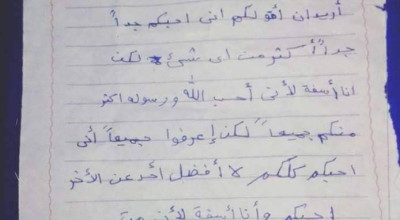 أريد ان اقولكم انى احبكم جداً
جداً أكثر من اى شئ لكن
انا أسفة لأنى أحب الله ورسوله اكتر
منكم جميعاً لكن إعرفوا جميعاً أنى
احبكم كلكم لا أفضل احد عن الأخر
احبكم وأنا أسفة لأن